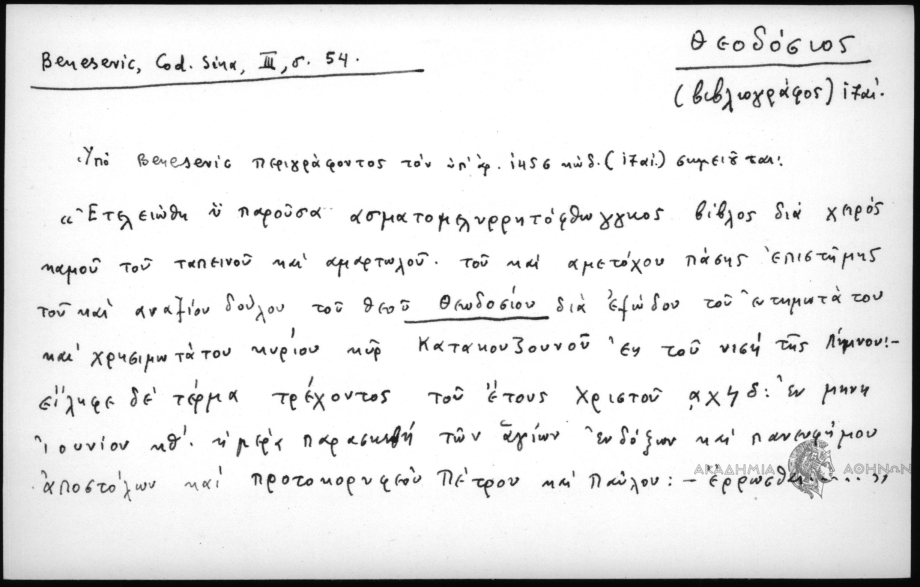 Benesevic, Cod. Sina, III, σ. 54.
Θεοδόσιος
(βιβλιογράφος) ιζαί.
Ὑπὸ Benesevic περιγράφοντος τὸν ὑπ' ἀρ. 1456 κώδ. (ιζαί.) σημειοῦται:
«Ἐτελειώθη ὑ παροῦσα ασματομελυρρητόφθωγγκος βίβλος διὰ χειρός
καμοῦ τοῦ ταπεινοῦ καὶ αμαρτωλοῦ. τοῦ καὶ αμετόχου πάσης ἐπιστήμης
τοῦ καὶ αναξίου δούλου τοῦ θεοῦ Θεωδοσίου διὰ ἐξώδου τοῦ ἐντημωτάτου
καὶ χρησιμωτάτου κυρίου κὺρ Κατακουζουνοῦ ἐκ τοῦ νισὴ τῆς Λίμνου:-
εἴληφε δὲ τέρμα τρέχοντος τοῦ ἔτους Χριστοῦ ͵αχϟδ: ἐν μηνη
Ἰουνίου κθ'. ἡμέρᾳ παρασκευῆ τῶν ἁγίων ἐνδόξων καὶ πανευφήμου
ἀποστόλων καὶ προτοκορυφεὸυ Πέτρου καὶ Παύλου: - ἐρρωσθε.....»
ΑΚΑΔΗΜΙΑ ΑΘΗΝΩΝ